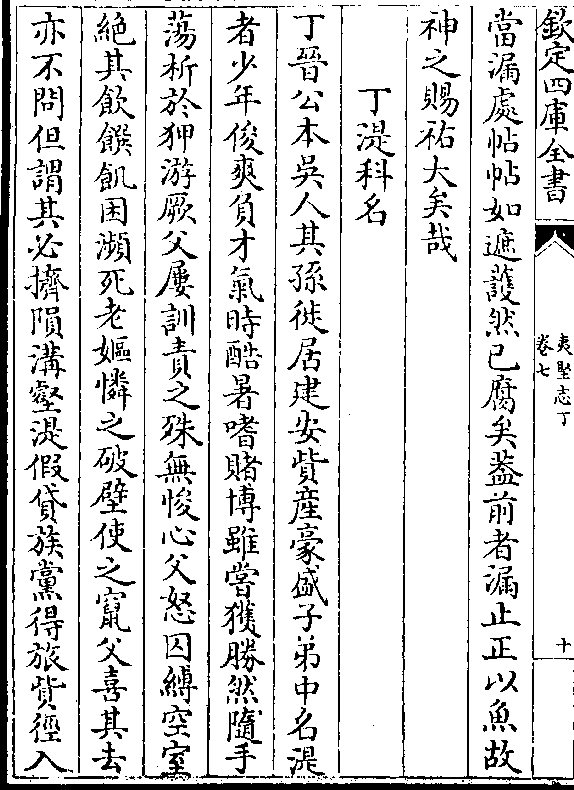 欽定四庫全書
夷堅志丁
卷七
十
當漏處帖帖如遮護然已腐矣葢前者漏止正以魚故
神之賜祐大矣哉
丁湜科名
丁晉公本吳人其孫徙居建安貲產豪盛子弟中名湜
者少年俊爽負才氣時酷暑嗜賭博雖嘗獲勝然隨手
蕩析於狎游厥父屢訓責之殊無悛心父怒囚縛空室
絶其飲饌飢困瀕死老嫗憐之破壁使之竄父喜其去
亦不問但謂其必擠隕溝壑湜假貸族黨得旅貲徑入